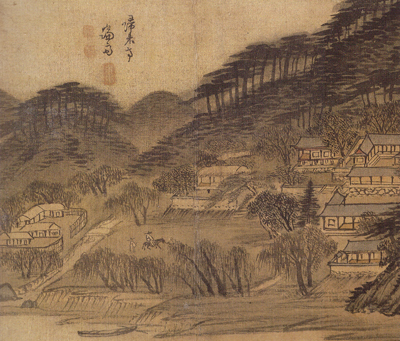 歸來亭
謙齋